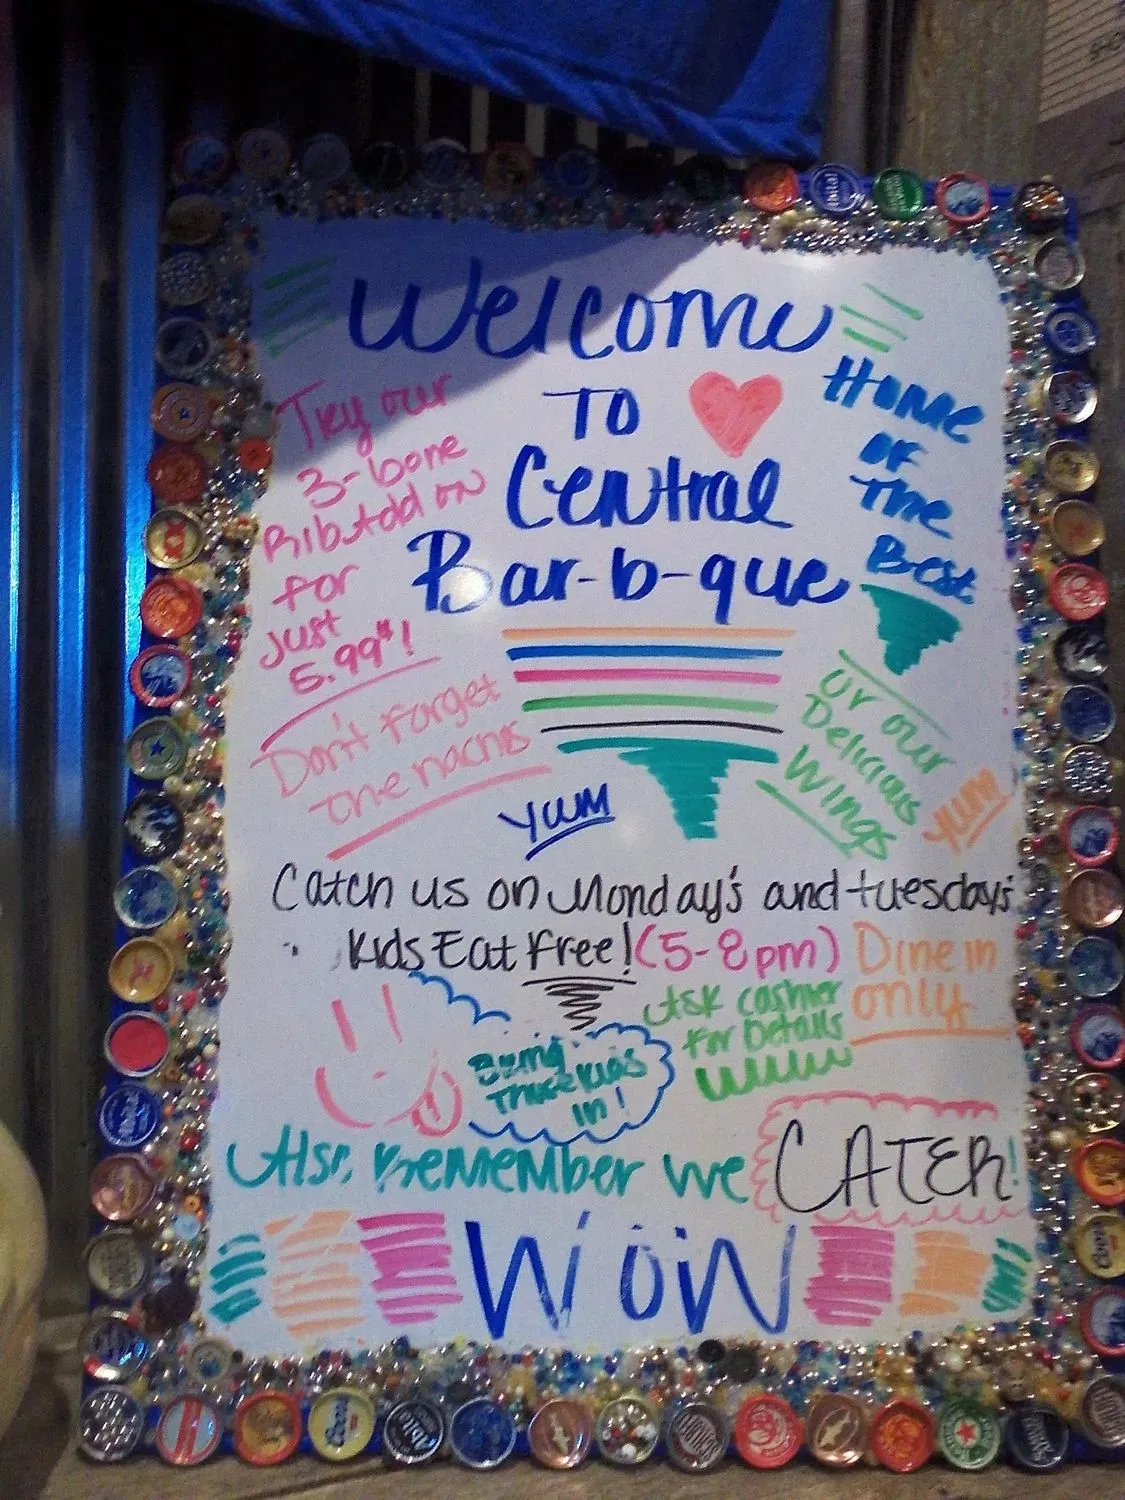 Welcome
To
Central
Bar-b-que
Home
of
The
Best
Try our
3-bone
Rib Add on
for
just
5.99!
Don't forget
the nachos
or our
Delicious
Wings
Yum
Yum
Catch us on Monday's and tuesday's
Kids Eat free! (5-8pm) Dine in
only
Ask cashier
for Details
Bring
kids
in!
Also, Remember we CATER!
WOW